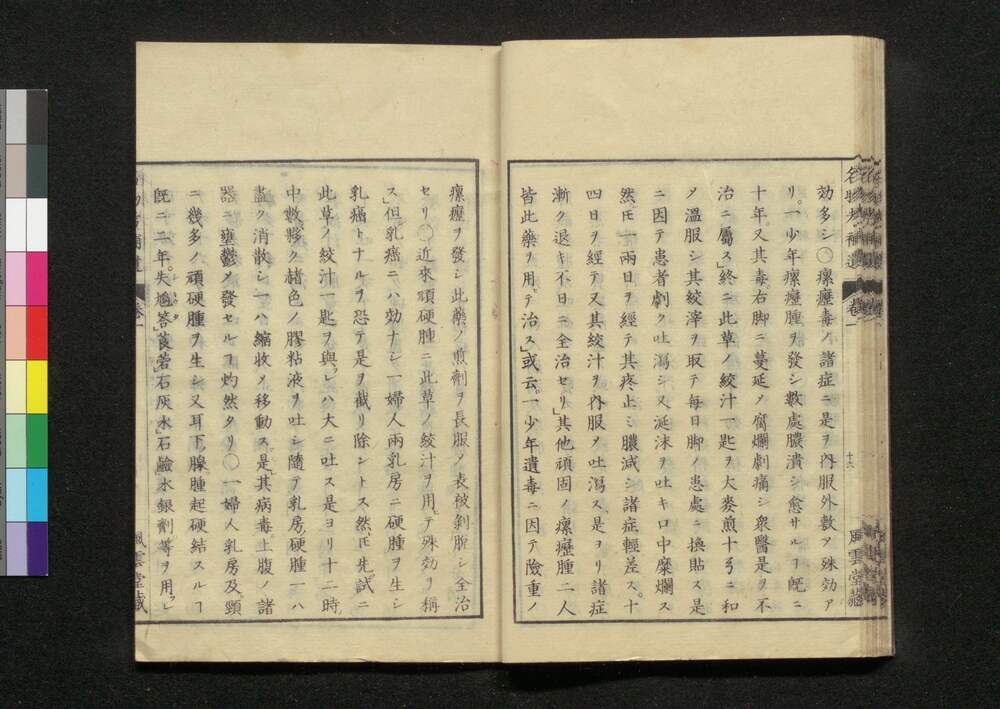 名物考補遺 卷一 十六 風雲堂藏
効多シ〇瘰癧毒ノ諸症ニ是ヲ內服外敷ノ殊効ア
リ。一少年瘰癧腫ヲ發シ數處膿潰シ愈サルヿ既ニ
十年。又其毒右脚ニ蔓延ノ腐爛劇痛シ衆醫是ヲ不
治ニ屬ス」終ニ此草ノ絞汁一匙ヲ大麥煎十弓ニ和
ヲ溫服シ其絞滓ヲ取テ每日脚ノ患處ニ換貼ス是
ニ因テ患者劇ク吐瀉シ又涎沫ヲ吐キ口中糜爛ス
然𪜈一兩日ヲ經テ其疼止ミ膿減シ諸症輕差ス。十
四日ヲ經テ又其絞汁ヲ內服メ吐瀉ス。是ヨリ諸症
漸ク退キ不日ニ全治セリ」其他頑固ノ瘰癧腫二人
皆此藥ヲ用テ治ス」或云。一少年遺毒ニ因テ險重ノ
瘰癧ヲ發シ此藥ノ煎劑ヲ長服ノ表被剝脫シ全治
セリ〇近來頑硬腫ニ此草ノ絞汁ヲ用テ殊効ヲ稱
ス」但乳癌ニハ効ナシ一婦人兩乳房ニ硬腫ヲ生シ
乳癌トナルヲ恐テ是ヲ截リ除ントス然𪜈先試ニ
此草ノ絞汁一匙ヲ與フレハ大ニ吐ス是ヨリ十二時
中數夥ク赭色ノ膠粘液ヲ吐シ隨テ乳房硬腫一ハ
盡ク消散シ一ハ縮收メ移動ス。是其病毒上腹ノ諸
器ニ壅鬱メ發セルヿ灼然タリ〇一婦人乳房及頸
ニ幾多ノ頑硬腫ヲ生シ又耳下腺腫起硬結スルヿ
既ニ二年。失鳩答」莨菪」石灰水」石鹼」水銀劑等ヲ用フレ
卷一 風雲堂藏